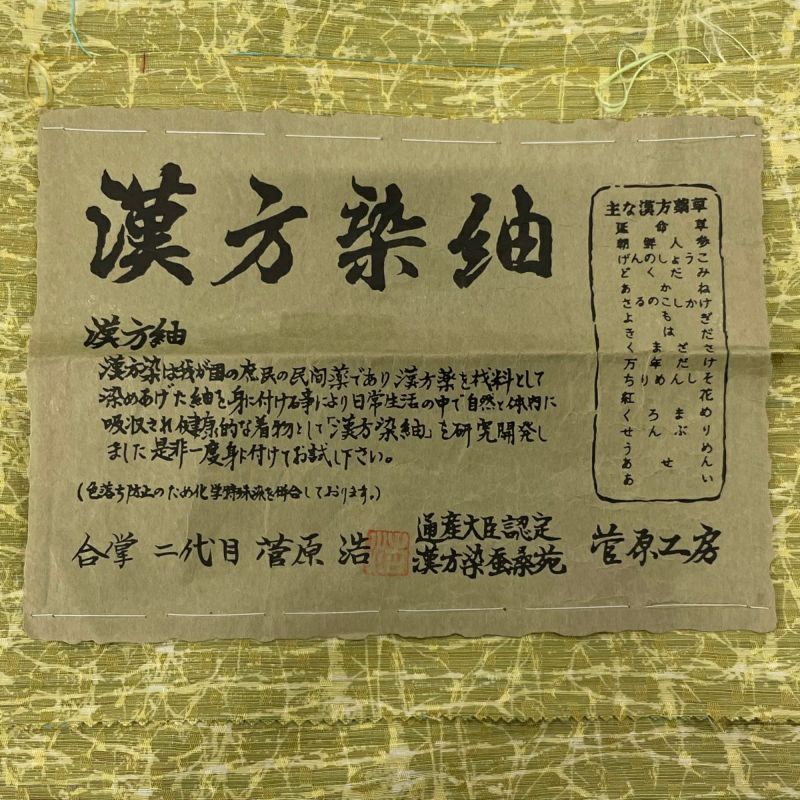 漢方染紬
漢方紬
漢方染は我が国の庶民の民間薬であり漢方薬を材料として
染めあげた紬を身に付ける事により日常生活の中で自然と体内に
吸収され健康的な着物として「漢方染紬」を研究開発し
ました是非一度身に付けてお試し下さい。
(色落ち防止のため化学特殊液を併合しております。)
合掌 二代目 菅原 浩
通産大臣認定
漢方染蚕桑苑
菅原工房
主な漢方薬草
延命草
朝鮮人参
げんのしょうこ
どくだみ
あかね
さるのこしかけ
よもぎ
きはだ
くまざさ
万年だけ
ちりめんじそ
紅花
くろまめ
せんぶり
うせん
あい